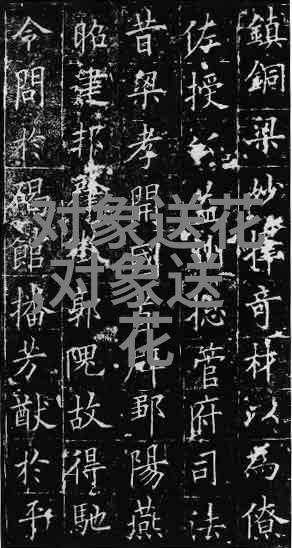 鎮銅梁妙擇奇材以為僚
佐授益州總管府司法
昔梁孝開國首辟鄒陽燕
昭建邦肇郭隗故得馳
令問於碣館播芳猷於平
对象送花
对象送
花